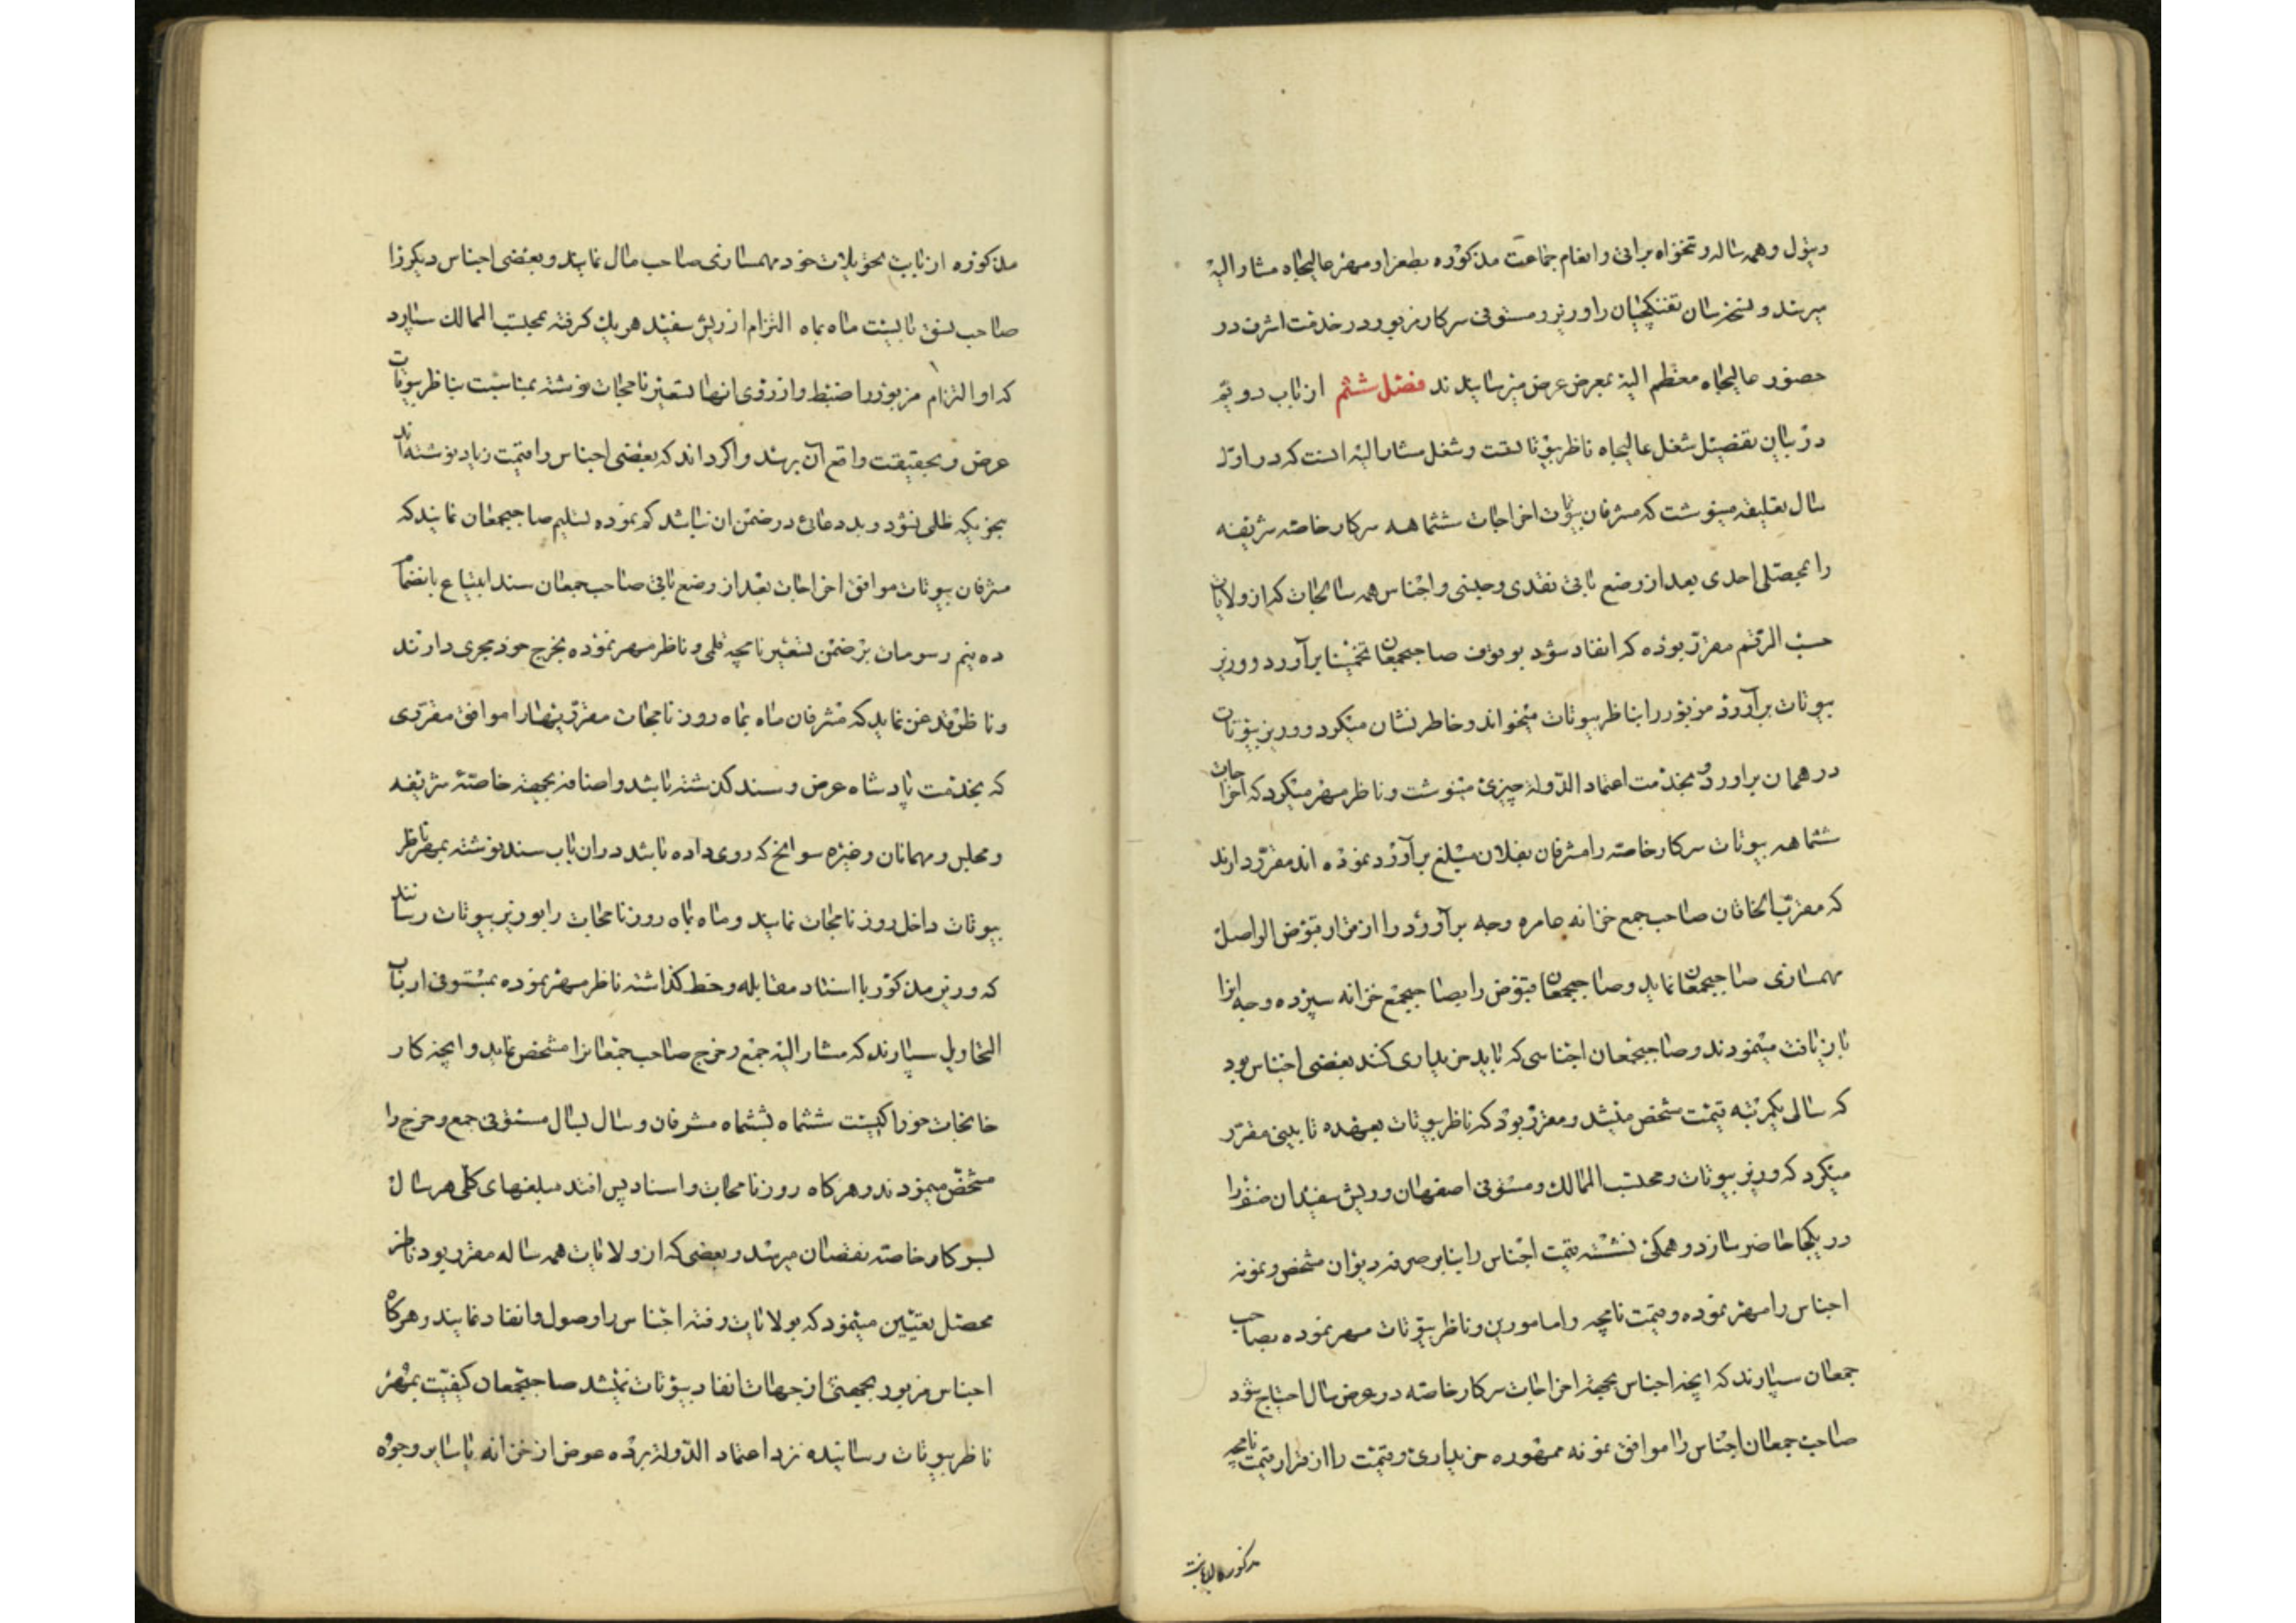 وتیول و همه ساله و تنخواه براتی و انعام جماعت مذکوره بطغرا و مهر عالیجاه مشار الیه
میرسد و نسخز سان تفنکچیان را وزیر و مستوفی سرکار مزبور در خدمت اشرف در
حضور عالیجاه معظم الیه بمعرض عرض میرسانیدند فصل ششم از باب دویم
در بیان تفصیل شغل عالیجاه ناظر بیوتاتست و شغل مشار الیه انست که در اول
سال تعلیقه مینوشت که مشرفان بیوتات اخراجات ششماهه سرکار خاصه شریفه
را بمحصلی احدی بعد از وضع باقی نقدی و جنسی و اجناس همه سالجات که از ولایات
حسب الرقم مقرر بوده که انفاد شود بوقوف صاحبجمعان تخمینا برآورد و وزیر
بیوتات برآورد مزبور را بناظر بیوتات میخواند و خاطر نشان میکرد و وزیر بیوتات
در همان براورد بخدمت اعتماد الدوله چیزی مینوشت و ناظر مهر میکرد که اخراجات
ششماهه بیوتات سرکار خاصه را مشرفان بفلان مبلغ برآورد نموده اند مقرر دارند
که مقرب الخاقان صاحب جمع خزانه عامره وجه برآورد را از قرار قبوض الواصل
بهمسازی صاحبجمعان نماید و صاحبجمعان قبوض را بصاحبجمع خزانه سپرده وجه انرا
بازیافت مینمودند و صاحبجمعان اجناسی که باید خریداری کنند بعضی اجناس بود
که سالی یکمرتبه قیمت مشخص میشد و مقرر بود که ناظر بیوتات بعهده تابینی مقرر
میکرد که وزیر بیوتات و محتسب الممالک و مستوفی اصفهان و ریش سفیدان صنف را
در یکجا حاضر سازد و همکی نشسته قیمت اجناس را بنابر صرفه دیوان مشخص و نمونه
اجناس را مهر نموده و قیمت نامچه را مامورین و ناظر بیوتات مهر نموده بصاحب
جمعان سپارند که انچه اجناس بجهة اخراجات سرکار خاصه در عرض سال احتیاج شود
صاحب جمعان اجناس را موافق نمونه ممهوره خریداری و قیمت را از قرار قیمت نامچه
مذکوره
مذکوره از بابت تحویلات خود بهمسازی صاحب مال نمایند و بعضی اجناس دیکر را
صاحب نسق بایست ماه بماه التزام از ریش سفید هر یک کرفته بمحتسب الممالک سپارد
که او التزام مزبور را ضبط و از روی انها تسعیر نامجات نوشته بمناسبت بناظر بیوتات
عرض و بحقیقت واقع آن برسد و اکر داند که بعضی اجناس را قیمت زیاد نوشته اند
بجزیکه ظلمی نشود و بددعائی در ضمن ان نباشد کم نموده تسلیم صاحبجمعان نمایند که
مشرفان بیوتات موافق اخراجات بعد از وضع باقی صاحب جمعان سند ابتیاع بانضمام
ده نیم رسومات بر ضمن تسعیر نامچه قلمی و ناظر مهر نموده بخرج خود مجری دارند
و ناظر قدغن نماید که مشرفان ماه بماه روزنامجات مقرریهارا موافق مقرری
که بخدمت پادشاه عرض و سند کذشته باشد و اضافه بجهة خاصه شریفه
و مجلس و مهمانان و غیره سوانح که روی داده باشد دران باب سند نوشته بمهر ناظر
بیوتات داخل روزنامجات نمایند و ماه بماه روزنامجات را بوزیر بیوتات رسانند
که وزیر مذکور با اسناد مقابله و خط کذاشته ناظر مهر نموده بمستوفی ارباب
التحاویل سپارند که مشار الیه جمع و خرج صاحب جمعانرا مشخص نماید و انچه کار
خانجات خوراکیست ششماه بششماه مشرفان و سال بسال مستوفی جمع و خرج را
مشخص مینمودند و هرکاه روزنامجات و اسناد پس افتد مبلغهای کلی هر سال
بسرکار خاصه نقصان میرسد و بعضی که از ولایات همه ساله مقرر بود ناظر
محصل تعیین مینمود که بولایات رفته اجناس را وصول و انفاد نمایند و هرکاه
اجناس مزبور بجهتی از جهات انفاد بیوتات نمیشد صاحبجمعان کیفیت بمهر
ناظر بیوتات رسانیده نزد اعتماد الدوله برده عوض از خزانه یا سایر وجوه